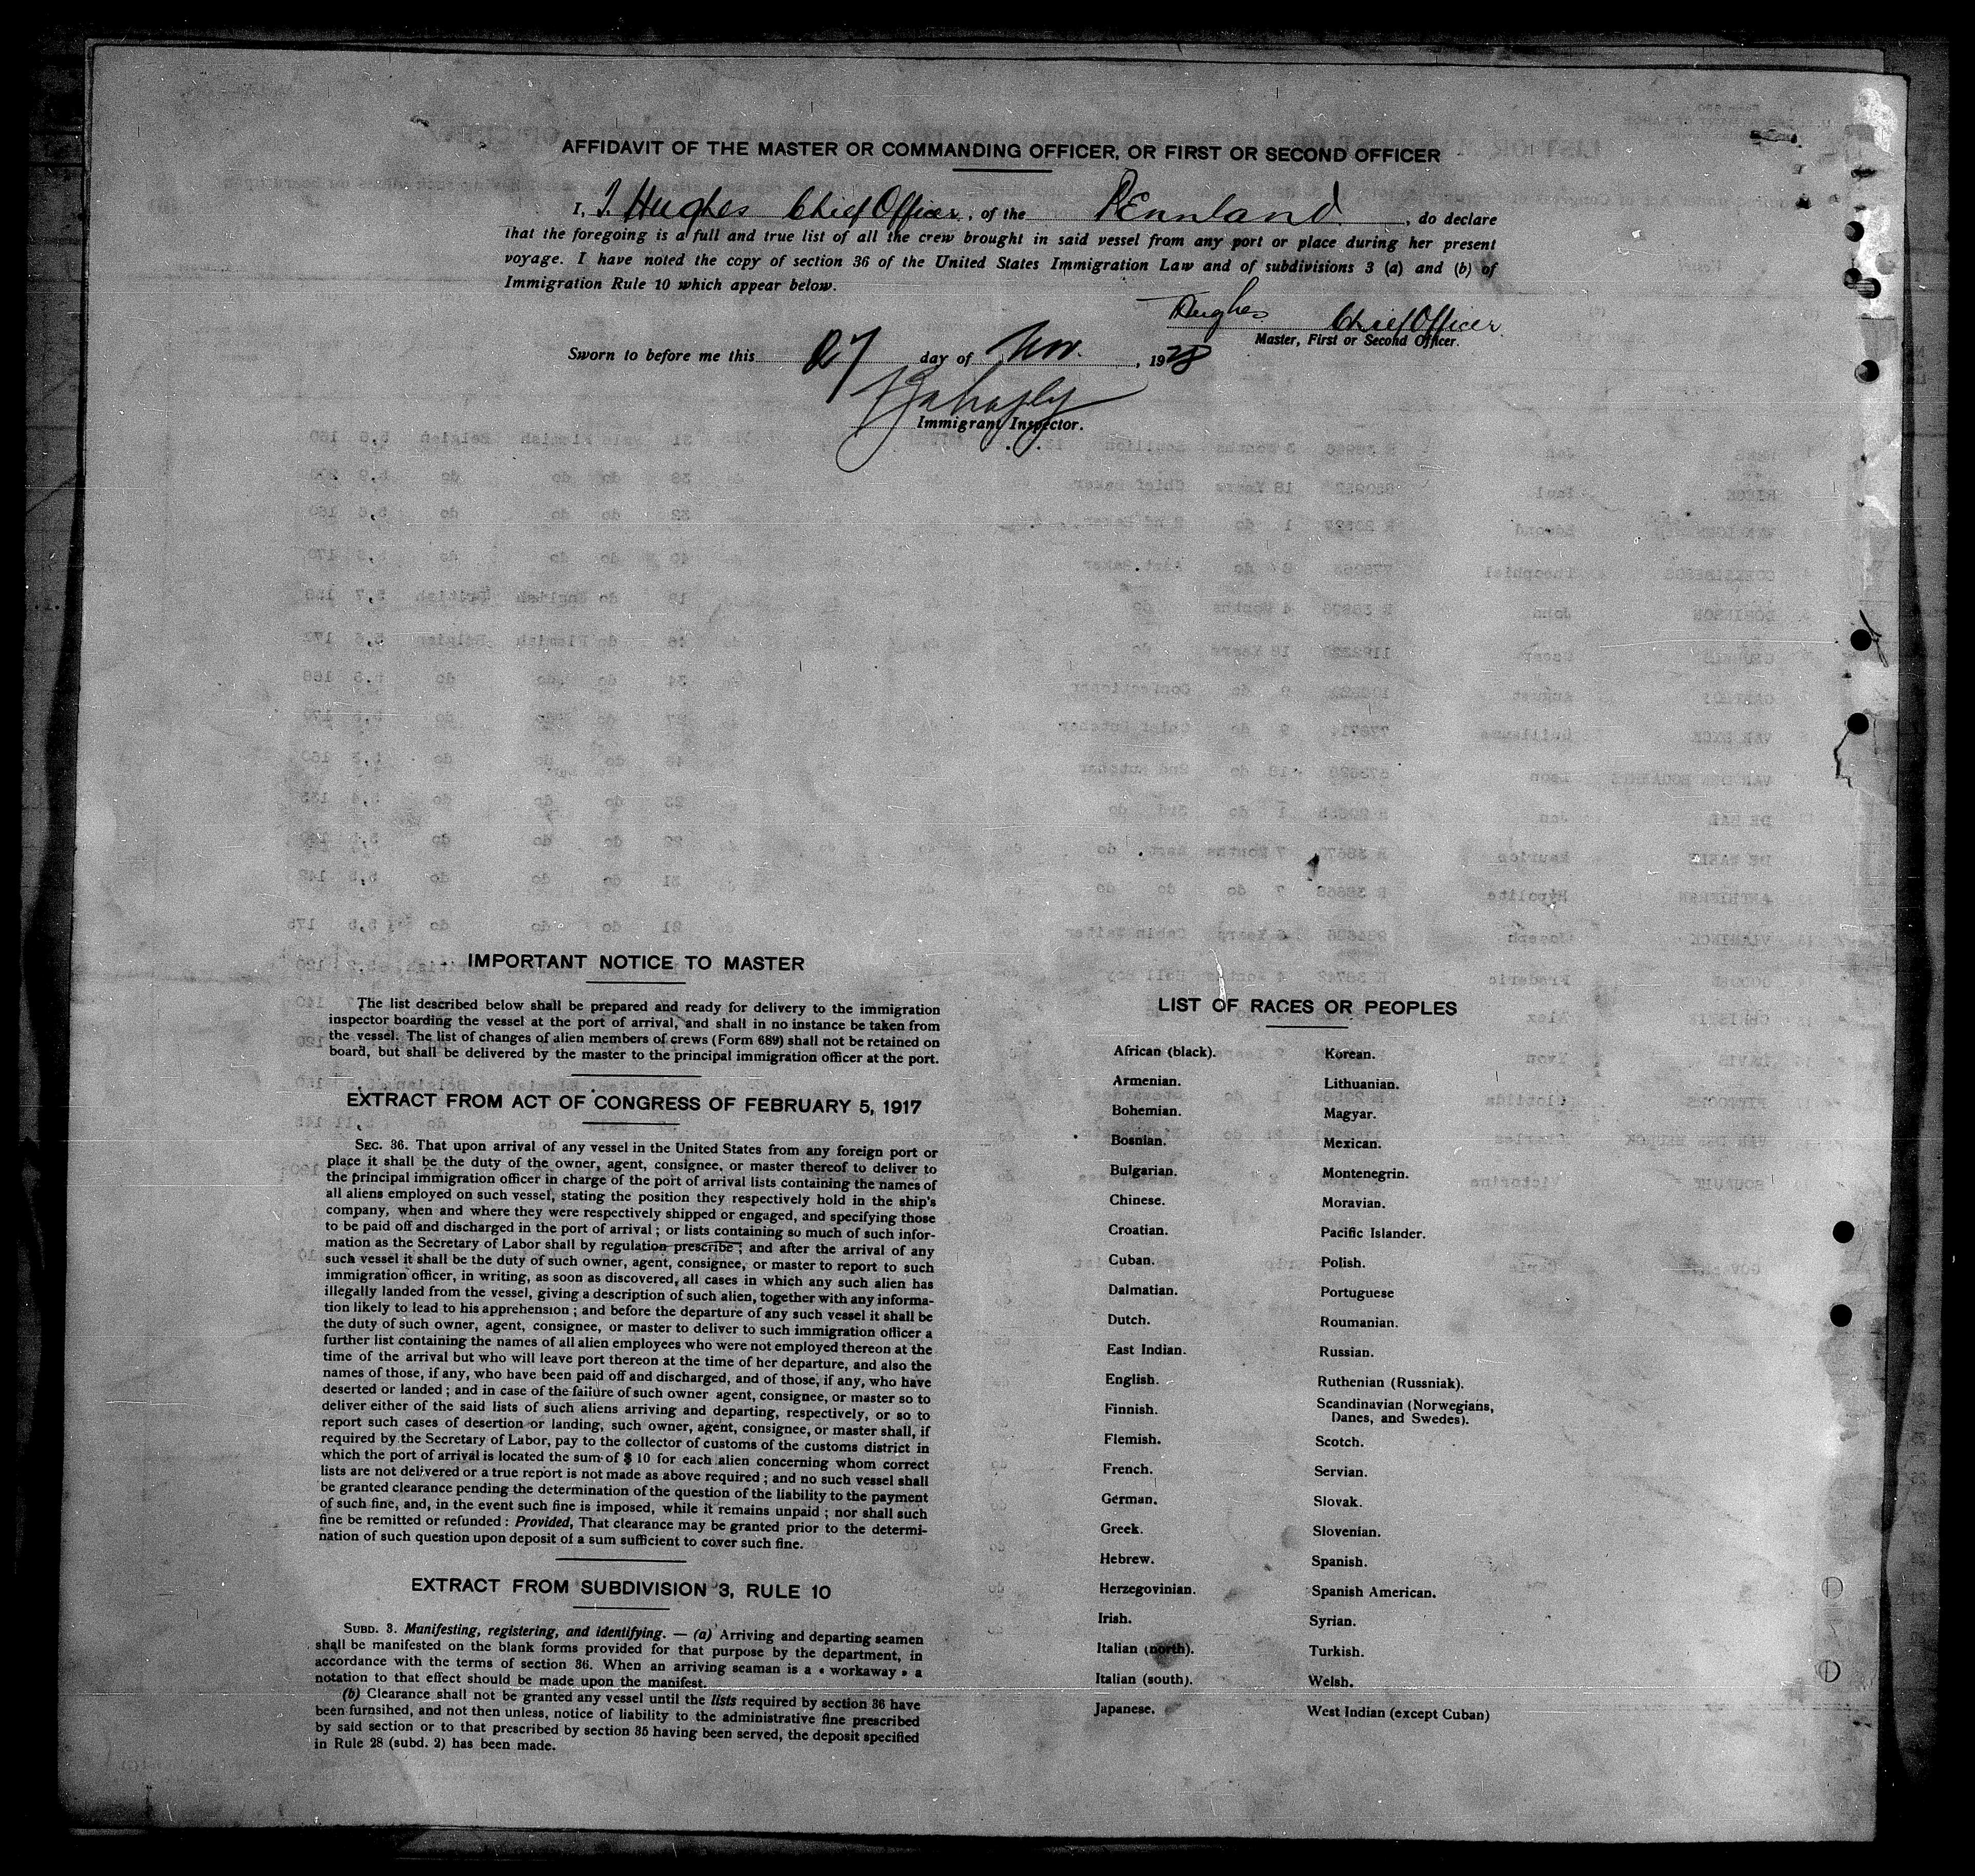 AFFIDAVIT OF THE MASTER OR COMMANDING OFFICER, OR FIRST OR SECOND OFFICER
I, J. Hughes Chief Officer, of the Pennland, do declare
that the foregoing is a full and true list of all the crew brought in said vessel from any port or place during her present
voyage. I have noted the copy of section 36 of the United States Immigration Law and of subdivisions 3 (a) and (b) of
Immigration Rule 10 which appear below.
Hughes Chief Officer
Master, First or Second Officer.
Sworn to before me this 27 day of Nov., 1928
Immigrant Inspector.
IMPORTANT NOTICE TO MASTER
The list described below shall be prepared and ready for delivery to the immigration
inspector boarding the vessel at the port of arrival, and shall in no instance be taken from
the vessel. The list of changes of alien members of crews (Form 689) shall not be retained on
board, but shall be delivered by the master to the principal immigration officer at the port.
EXTRACT FROM ACT OF CONGRESS OF FEBRUARY 5, 1917
SEC. 36. That upon arrival of any vessel in the United States from any foreign port or
place it shall be the duty of the owner, agent, consignee, or master thereof to deliver to
the principal immigration officer in charge of the port of arrival lists containing the names of
all aliens employed on such vessel, stating the position they respectively hold in the ship's
company, when and where they were respectively shipped or engaged, and specifying those
to be paid off and discharged in the port of arrival ; or lists containing so much of such infor-
mation as the Secretary of Labor shall by regulation prescribe ; and after the arrival of any
such vessel it shall be the duty of such owner, agent, consignee, or master to report to such
immigration officer, in writing, as soon as discovered, all cases in which any such alien has
illegally landed from the vessel, giving a description of such alien, together with any informa-
tion likely to lead to his apprehension ; and before the departure of any such vessel it shall be
the duty of such owner, agent, consignee, or master to deliver to such immigration officer a
further list containing the names of all alien employees who were not employed thereon at the
time of the arrival but who will leave port thereon at the time of her departure, and also the
names of those, if any, who have been paid off and discharged, and of those, if any, who have
deserted or landed ; and in case of the failure of such owner agent, consignee, or master so to
deliver either of the said lists of such aliens arriving and departing, respectively, or so to
report such cases of desertion or landing, such owner, agent, consignee, or master shall, if
required by the Secretary of Labor, pay to the collector of customs of the customs district in
which the port of arrival is located the sum of $ 10 for each alien concerning whom correct
lists are not delivered or a true report is not made as above required ; and no such vessel shall
be granted clearance pending the determination of the question of the liability to the payment
of such fine, and, in the event such fine is imposed, while it remains unpaid ; nor shall such
fine be remitted or refunded : Provided, That clearance may be granted prior to the determi-
nation of such question upon deposit of a sum sufficient to cover such fine.
EXTRACT FROM SUBDIVISION 3, RULE 10
SUBD. 3. Manifesting, registering, and identifying. — (a) Arriving and departing seamen
shall be manifested on the blank forms provided for that purpose by the department, in
accordance with the terms of section 36. When an arriving seaman is a « workaway » a
notation to that effect should be made upon the manifest.
(b) Clearance shall not be granted any vessel until the lists required by section 36 have
been furnsihed, and not then unless, notice of liability to the administrative fine prescribed
by said section or to that prescribed by section 35 having been served, the deposit specified
in Rule 28 (subd. 2) has been made.
LIST OF RACES OR PEOPLES
African (black).
Armenian.
Bohemian.
Bosnian.
Bulgarian.
Chinese.
Croatian.
Cuban.
Dalmatian.
Dutch.
East Indian.
English.
Finnish.
Flemish.
French.
German.
Greek.
Hebrew.
Herzegovinian.
Irish.
Italian (north).
Italian (south).
Japanese.
Korean.
Lithuanian.
Magyar.
Mexican.
Montenegrin.
Moravian.
Pacific Islander.
Polish.
Portuguese
Roumanian.
Russian.
Ruthenian (Russniak).
Scandinavian (Norwegians,
Danes, and Swedes).
Scotch.
Servian.
Slovak.
Slovenian.
Spanish.
Spanish American.
Syrian.
Turkish.
Welsh.
West Indian (except Cuban)